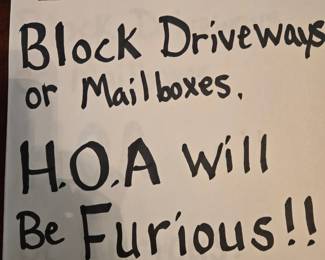 Block Driveways
or Mailboxes.
H.O.A Will
Be Furious!!